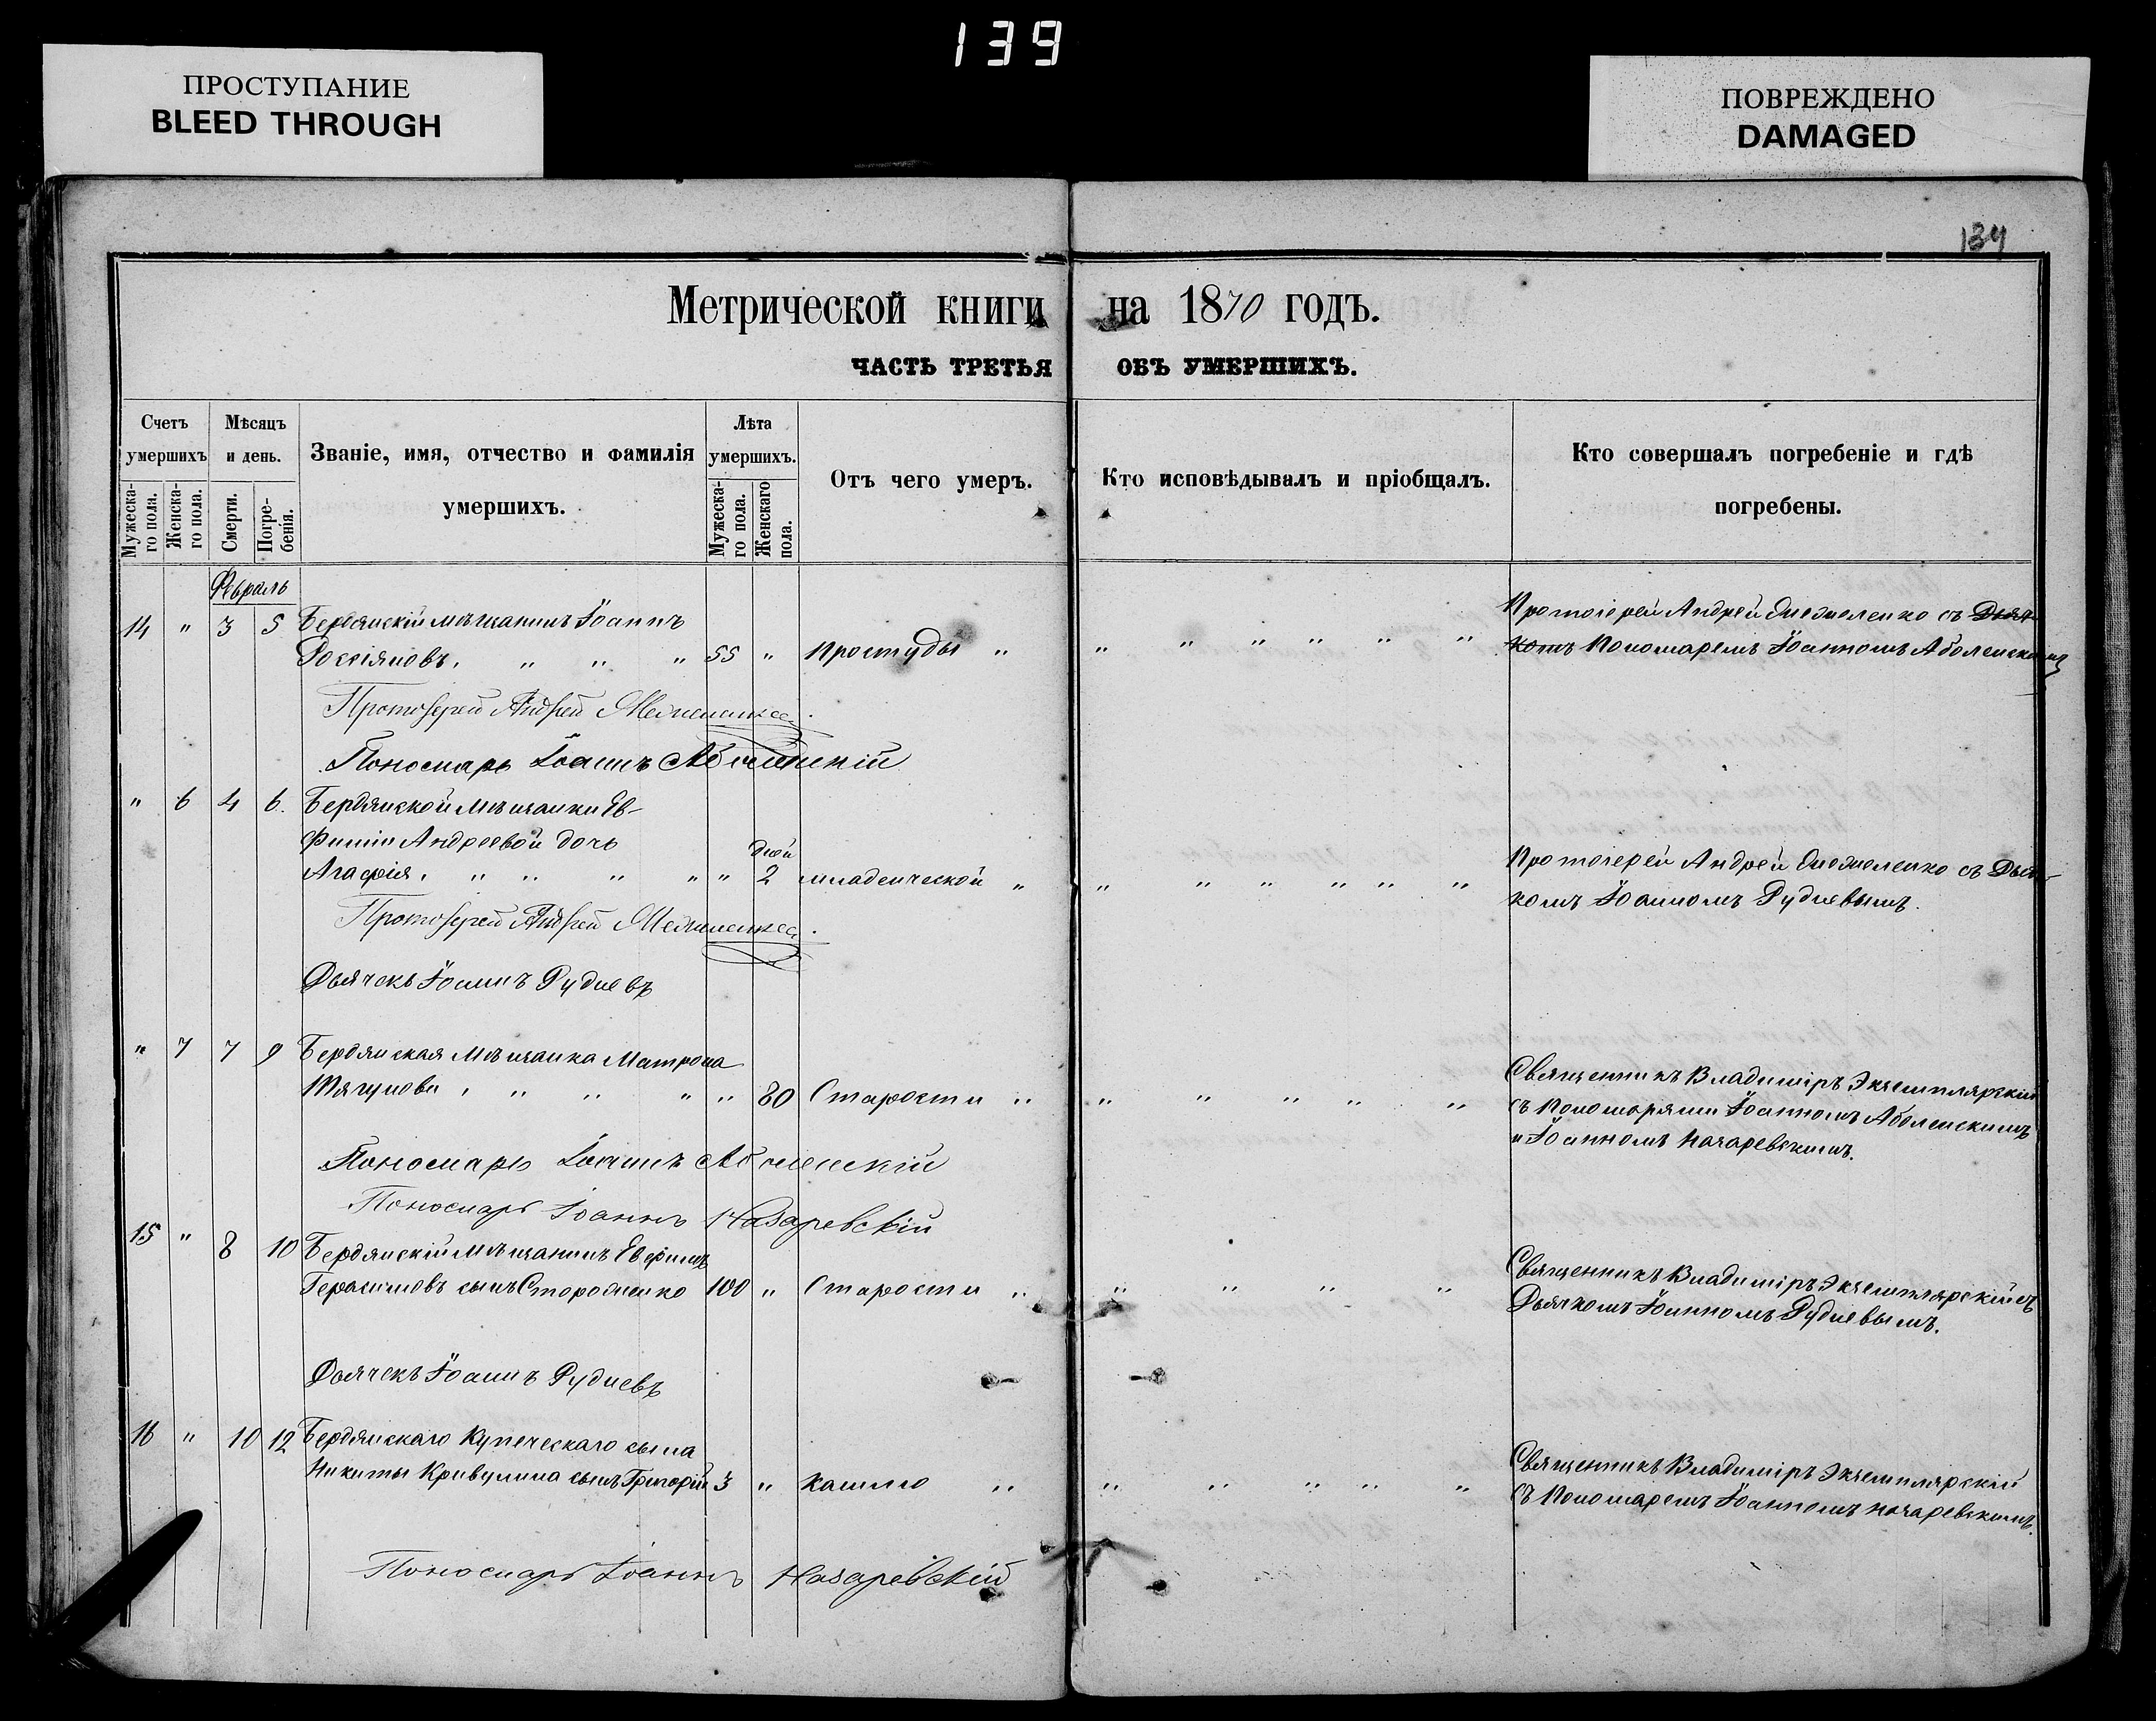 139
ПРОСТУПАНИЕ
BLEED THROUGH
ПОВРЕЖДЕНО
DAMAGED
134
Метрической книги на 1870 годъ.
ЧАСТЬ ТРЕТЬЯ ОБЪ УМЕРШИХЪ.
Счетъ умершихъ
Мужеска-го пола.
Женска-го пола.
Мѣсяцъ и день.
Смерти.
Погре-бенія.
Званіе, имя, отчество и фамилія умершихъ.
Лѣта умершихъ.
Мужеска-го пола.
Женскаго пола.
Отъ чего умеръ.
Кто исповѣдывалъ и пріобщалъ.
Кто совершалъ погребеніе и гдѣ погребены.
Февраль
14 " 3 5 Бердянскій мѣщанинъ Іоаннъ
Россіяновъ. " " " 55 " Простуды " " " " " " "
Протоіерей Андрей съ Дьяч-
комъ Пономаремъ Іоанномъ Аболенскимъ
Протоіерей Андрей
Пономарь Іоаннъ Аболенскій
" 6 4 6. Бердянской мѣщанки Ев-
фиміи Андреевой дочь
Агафія. " " " " " дней 2 младенческой " " " " " " "
Протоіерей Андрей съ Дьяч-
комъ Іоанномъ Рудневымъ.
Протоіерей Андрей
Дьячекъ Іоаннъ Рудневъ
" 7 7 9 Бердянская Мѣщанка Матрона
Тягунова " " " " " 80 Старости " " " " " "
Священникъ Владиміръ Экземплярскій
съ Пономарями Іоанномъ Аболенскимъ
и Іоанномъ Назаревскимъ.
Пономарь Іоаннъ Аболенскій
Пономарь Іоаннъ Назаревскій
15 " 8 10 Бердянскій мѣщанинъ Евфимъ
Герасимовъ сынъ Стороженко 100 " Старости " " " " "
Священникъ Владиміръ Экземплярскій съ
Дьячкомъ Іоанномъ Рудневымъ.
Дьячекъ Іоаннъ Рудневъ
16 " 10 12 Бердянскаго Купеческаго сына
Никиты Кривулина сынъ Григорій 3 " Кашлю " " " " " "
Священникъ Владиміръ Экземплярскій
съ Пономаремъ Іоанномъ Назаревскимъ.
Пономарь Іоаннъ Назаревскій